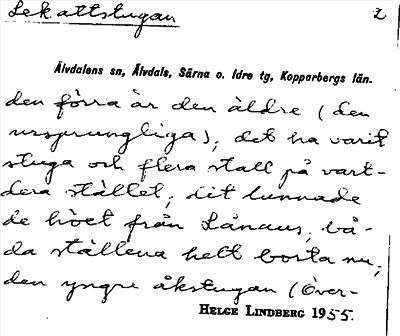 Lekattstugan 2
Älvdalens sn, Älvdals, Särna o. Idre tg, Kopparbergs län.
den förra är den äldre (den
ursprungliga); det ha varit
stuga och flera stall på vart-
dera stället; dit lunnade
de höet från Lånaus; bå-
da ställena helt borta nu;
den yngre åkstugan (över-
HELGE LINDBERG 1955.